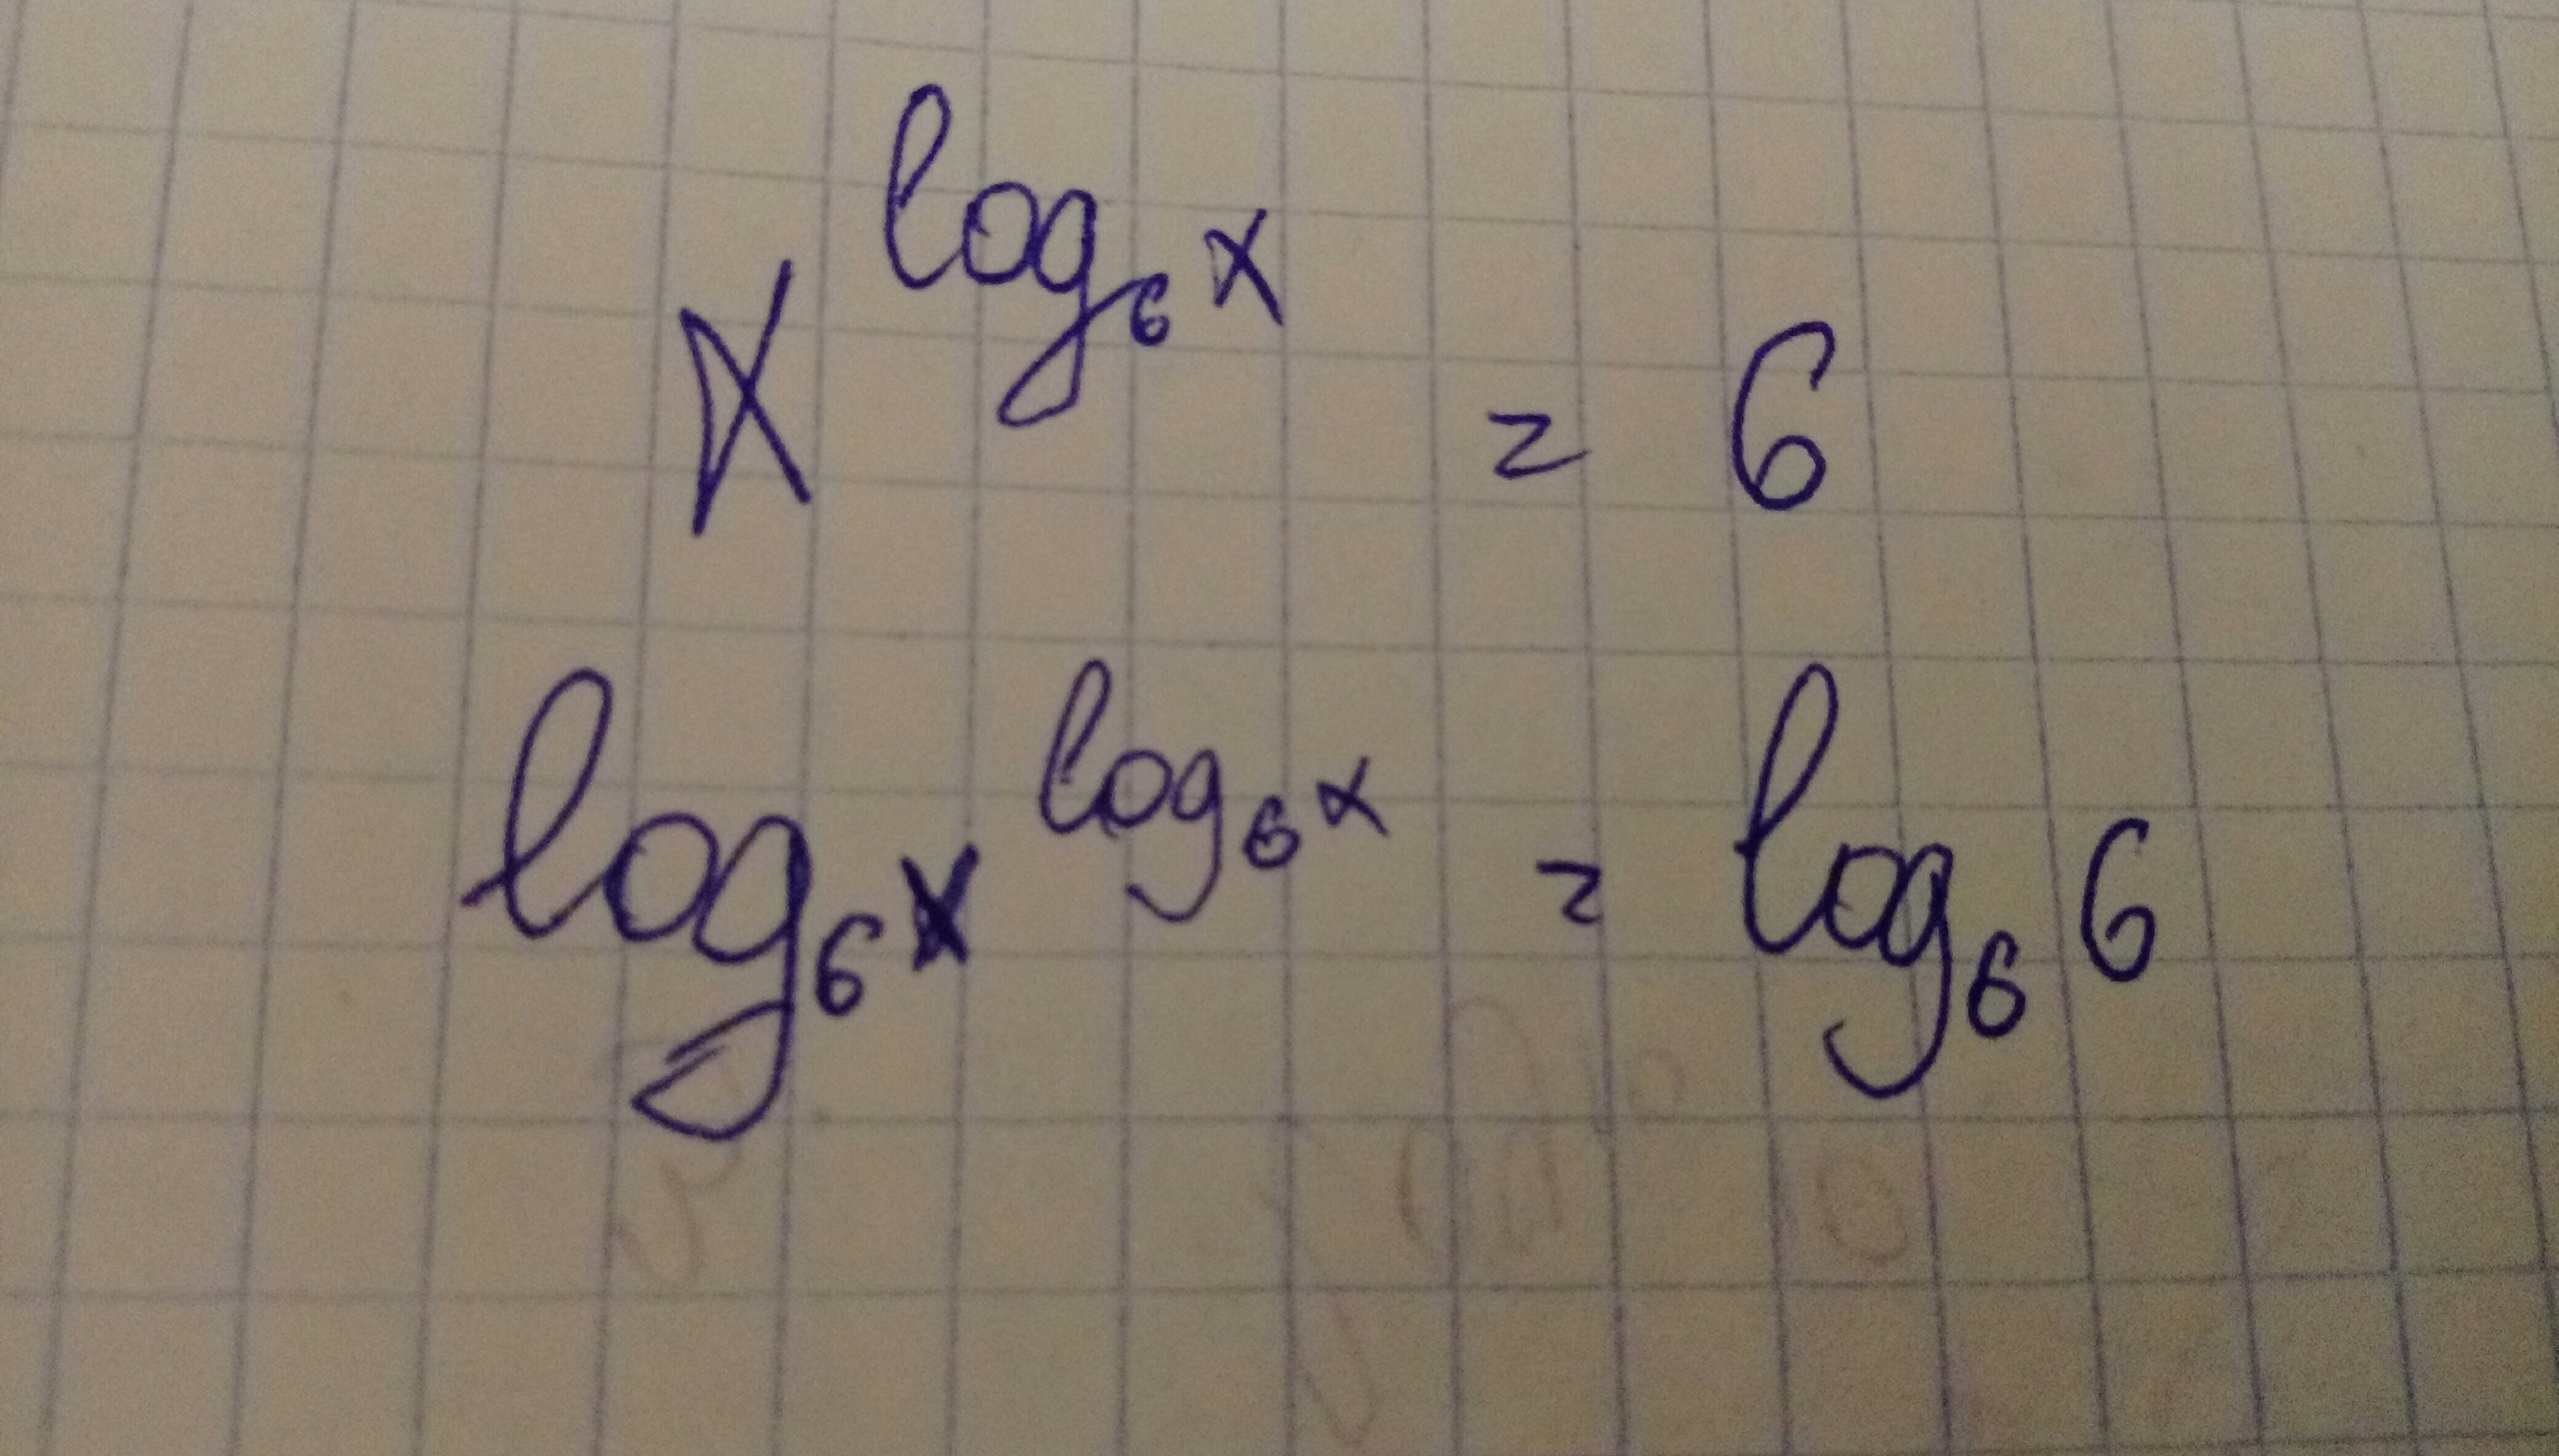 x^{log_6 x} = 6
log_6 x^{log_6 x} = log_6 6